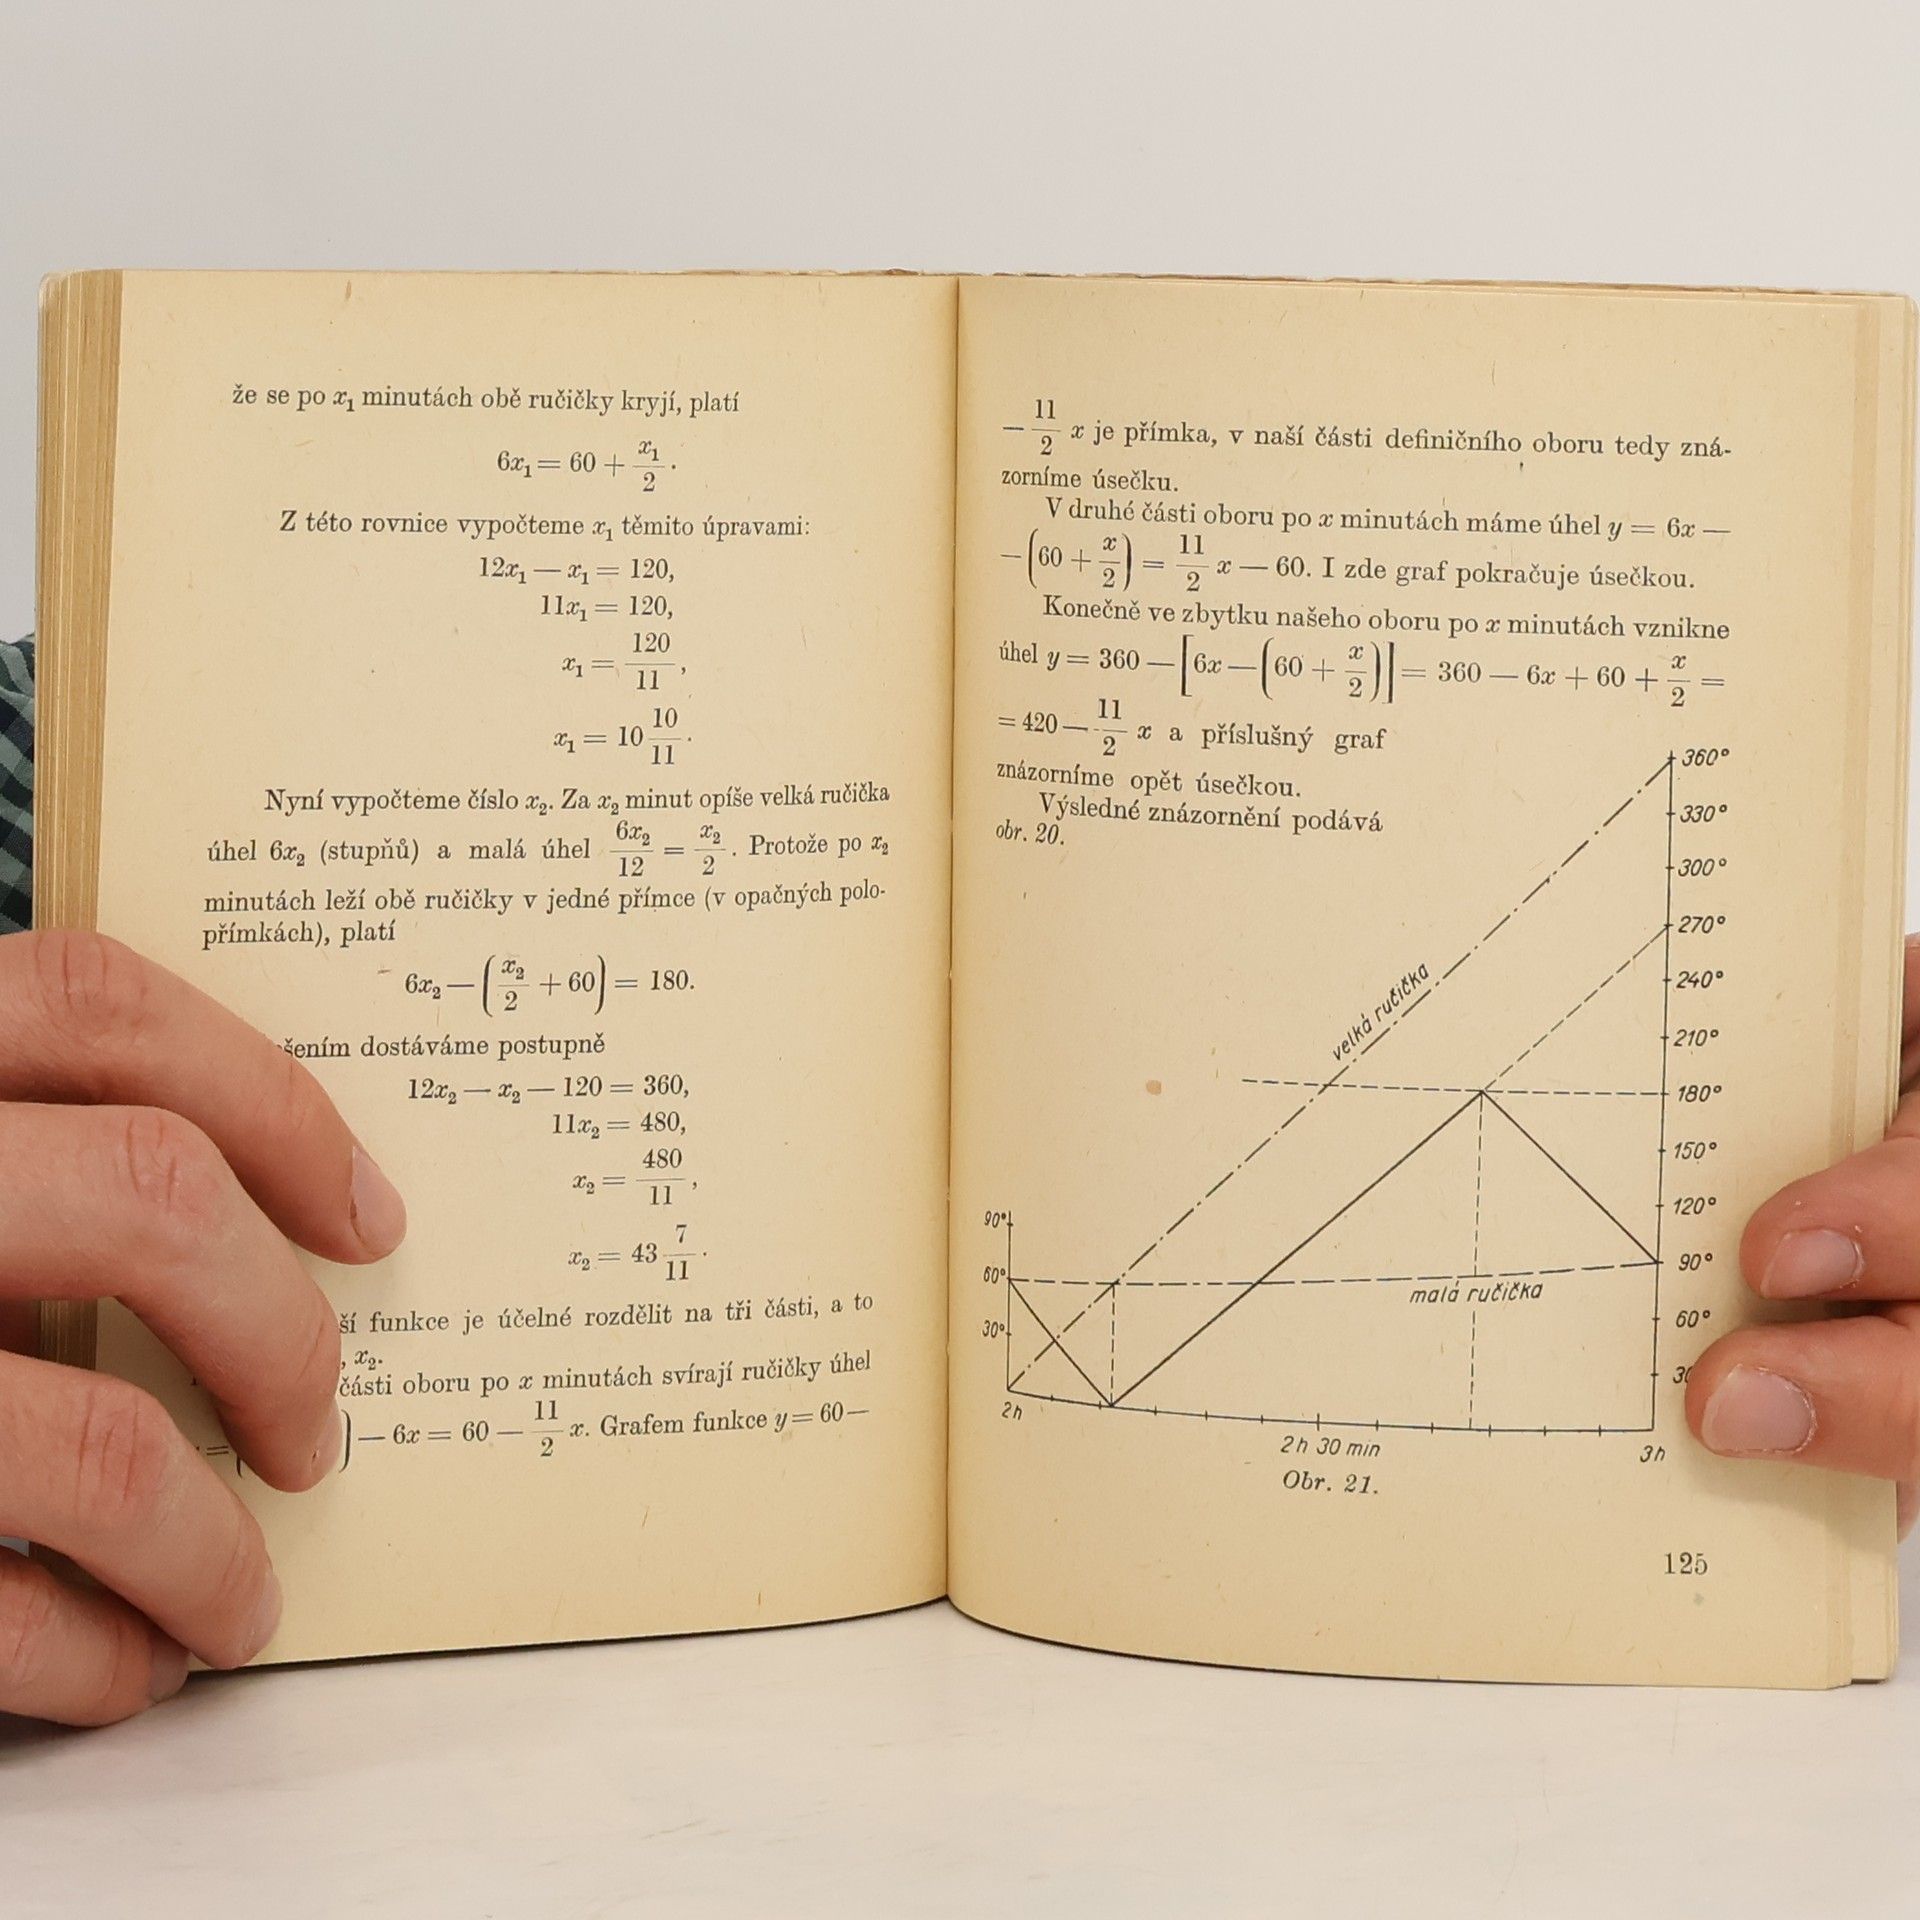 že se po x₁ minutách obě ručičky kryjí, platí
6x₁ = 60 + x₁/2.
Z této rovnice vypočteme x₁ těmito úpravami:
12x₁ — x₁ = 120,
11x₁ = 120,
x₁ = 120/11,
x₁ = 10 10/11.
Nyní vypočteme číslo x₂. Za x₂ minut opíše velká ručička
úhel 6x₂ (stupňů) a malá úhel 6x₂/12 = x₂/2. Protože po x₂
minutách leží obě ručičky v jedné přímce (v opačných polo-
přímkách), platí
6x₂ — (x₂/2 + 60) = 180.
šením dostáváme postupně
12x₂ — x₂ — 120 = 360,
11x₂ = 480,
x₂ = 480/11,
x₂ = 43 7/11.
ší funkce je účelné rozdělit na tři části, a to
, x₂.
části oboru po x minutách svírají ručičky úhel
) — 6x = 60 — 11/2 x. Grafem funkce y = 60 —
— 11/2 x je přímka, v naší části definičního oboru tedy zná-
zorníme úsečku.
V druhé části oboru po x minutách máme úhel y = 6x —
— (60 + x/2) = 11/2 x — 60. I zde graf pokračuje úsečkou.
Konečně ve zbytku našeho oboru po x minutách vznikne
úhel y = 360 — [6x — (60 + x/2)] = 360 — 6x + 60 + x/2 =
= 420 — 11/2 x a příslušný graf
znázorníme opět úsečkou.
Výsledné znázornění podává
obr. 20.
360°
330°
300°
270°
240°
210°
180°
150°
120°
90°
60°
velká ručička
malá ručička
90°
60°
30°
2h
2h 30 min
3h
Obr. 21.
125